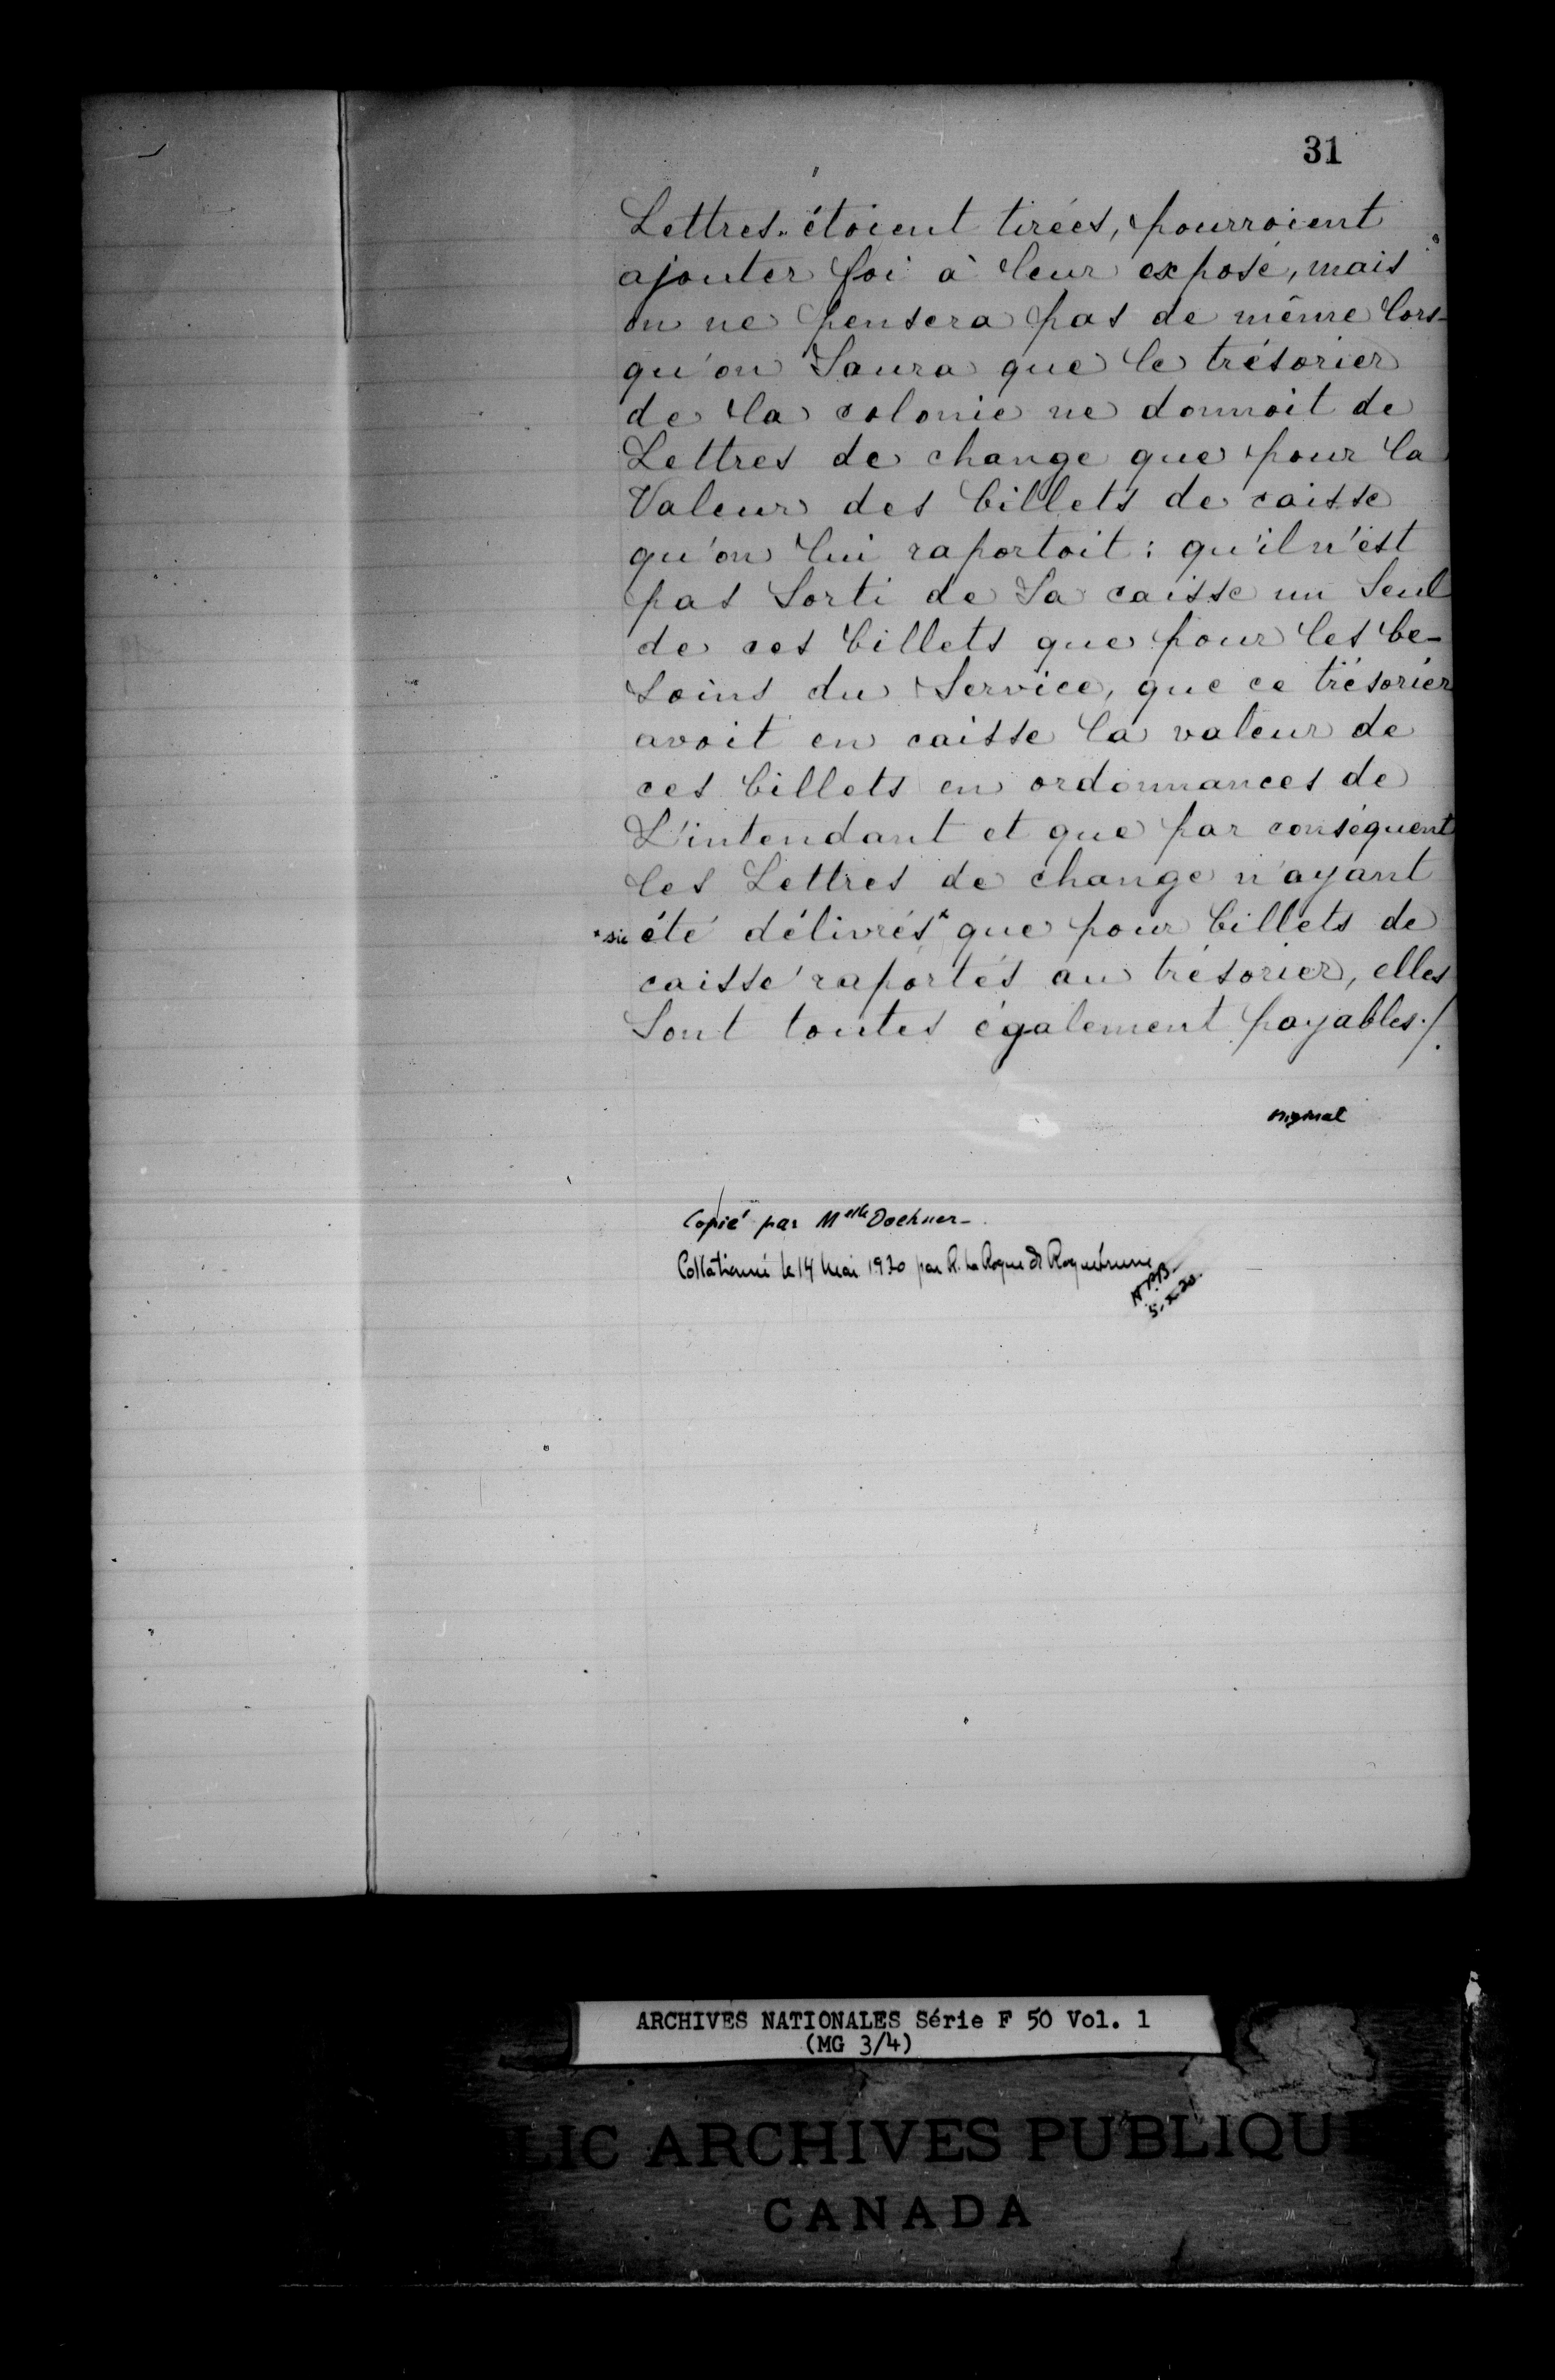 31
Lettres étoient tirées, pourroient
ajouter foi à leur exposé, mais
on ne pensera pas de même lors-
qu'on Saura que le trésorier
de la colonie ne donnoit de
Lettres de change que pour la
Valeur des billets de caisse
qu'on lui raportoit : qu'il n'est
pas Sorti de Sa caisse un Seul
de ces billets que pour les be-
Soins du Service, que ce trésorier
avoit en caisse la valeur de
ces billets en ordonnances de
L'intendant et que par conséquent
les Lettres de change n'ayant
*sic été délivrés* que pour billets de
caisse raportés au trésorier, elles
Sont toutes également payables./.
original
Copié par Melle Doehner-
Collationné le 14 Mai 1930 par R. La Roque de Roquebrune
5.X.30
ARCHIVES NATIONALES Série F 50 Vol. 1
(MG 3/4)
LIC ARCHIVES PUBLIQUE
CANADA